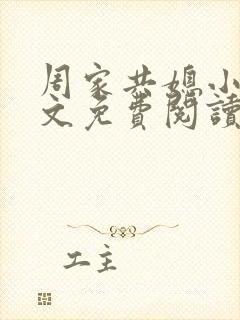 周家共媳小
文免費閱讀
工主